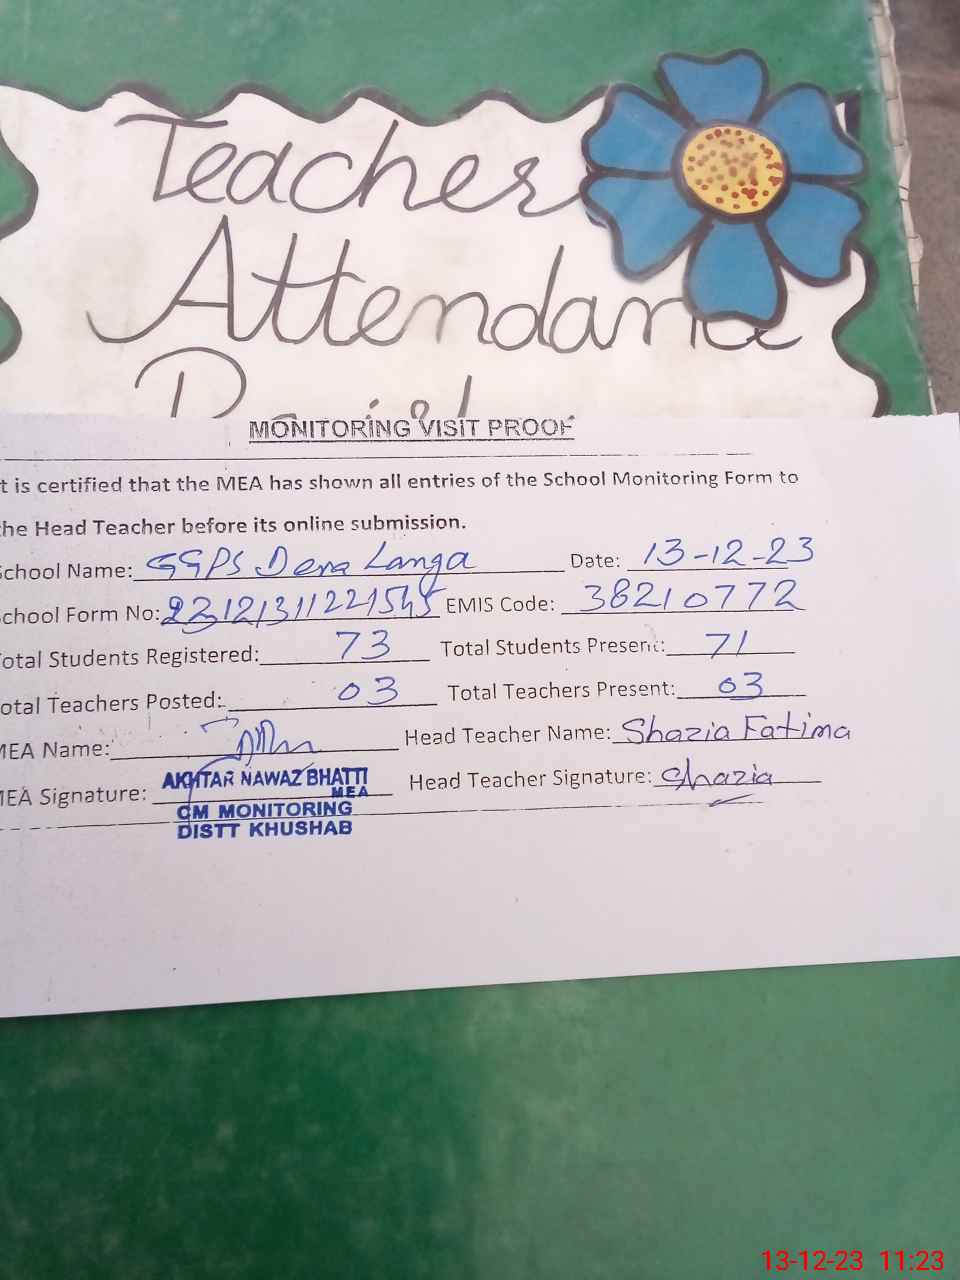 Teacher
Attendance
MONITORING VISIT PROOF
t is certified that the MEA has shown all entries of the School Monitoring Form to
the Head Teacher before its online submission.
School Name: GGPS Dera Langa Date: 13-12-23
School Form No: EMIS Code: 38210772
Total Students Registered: 73 Total Students Present: 71
Total Teachers Posted: 03 Total Teachers Present: 03
MEA Name: Head Teacher Name: Shazia Fatima
MEA Signature: Head Teacher Signature: Shazia
AKHTAR NAWAZ BHATTI
MEA
CM MONITORING
DISTT KHUSHAB
13-12-23 11:23